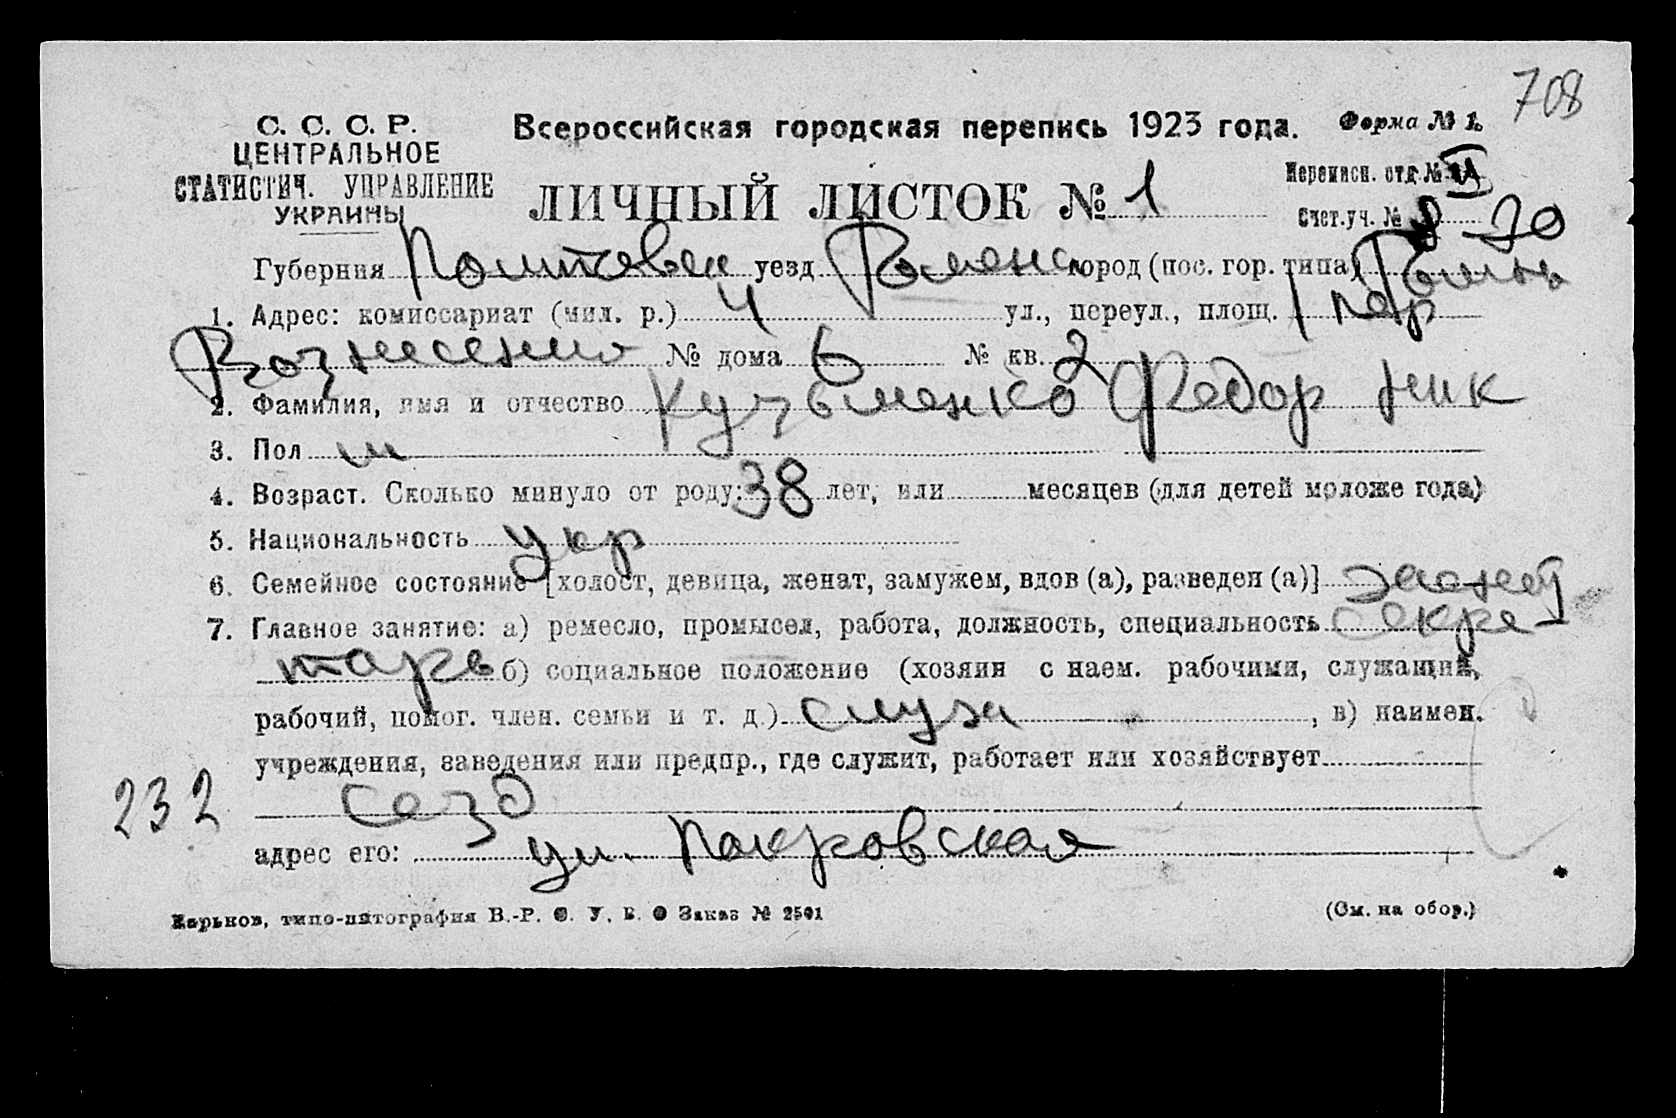 708
С. С. С. Р.
ЦЕНТРАЛЬНОЕ
СТАТИСТИЧ. УПРАВЛЕНИЕ
УКРАИНЫ
Всероссийская городская перепись 1923 года.
Форма № 1.
ЛИЧНЫЙ ЛИСТОК № 1
Переписн. отд. №
Счет.уч. № 20
Губерния Полтавск уезд Роменс город (пос. гор. типа) Ромны
1. Адрес: комиссариат (мил. р.) 4 ул., переул., площ. 1 пер
Вознесенс № дома 6 № кв. 2
2. Фамилия, имя и отчество Кузьменко Федор Ник
3. Пол м
4. Возраст. Сколько минуло от роду: 38 лет, или месяцев (для детей моложе года)
5. Национальность Укр
6. Семейное состояние [холост, девица, женат, замужем, вдов (а), разведен (а)] женат
7. Главное занятие: а) ремесло, промысел, работа, должность, специальность секре-
тарь б) социальное положение (хозяин с наем. рабочими, служащий,
рабочий, помог. член. семьи и т. д.) служа , в) наимен.
учреждения, заведения или предпр., где служит, работает или хозяйствует
232
адрес его: ул. Покровская
Харьков, типо-литография В.-Р. Ф. У. В. О Заказ № 2501
(См. на обор.)